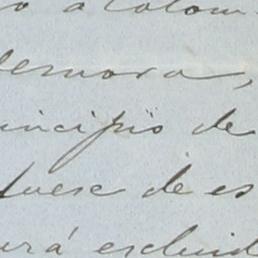 o a Colom
demora,
incipio de
fuese de es
urá escluid